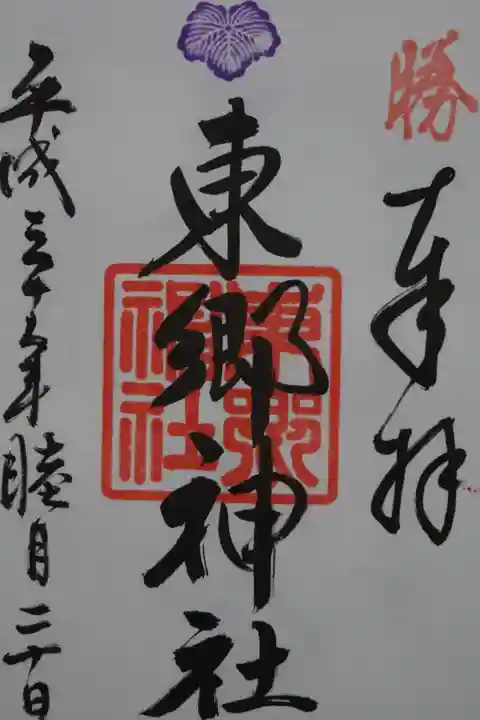 勝
奉拝
東郷神社
東郷神社
平成二十五年睦月二十日